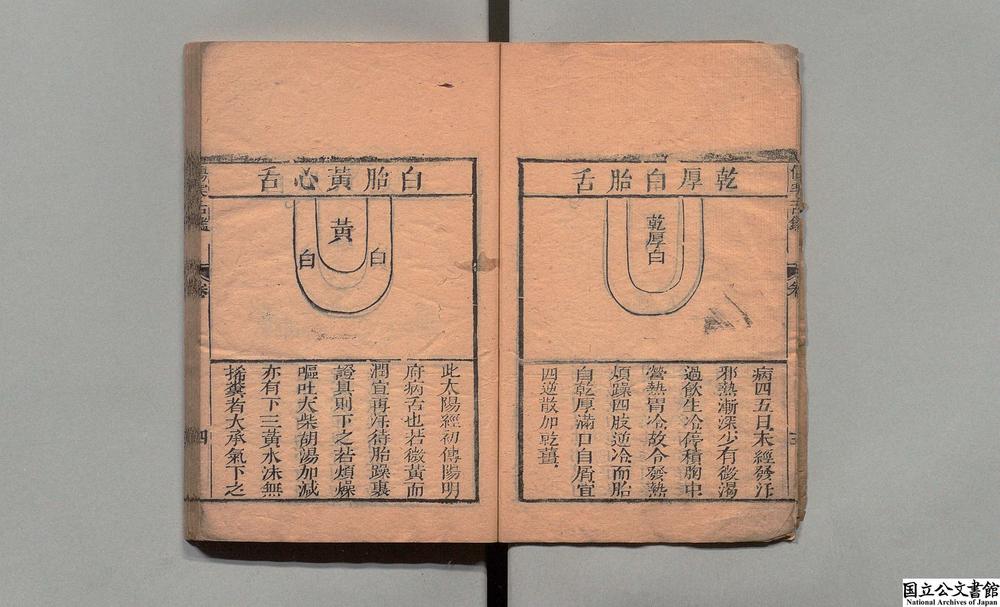 乾厚白胎舌
乾厚白
病四五日未經發汗
邪熱漸深少有微渴
過飲生冷停積胸中
營熱胃冷故令發熱
煩躁四肢逆冷而胎
白乾厚滿口白屑宜
四逆散加乾薑
白胎黃心舌
黃
白
白
此太陽經初傳陽明
府病舌也若微黃而
潤宜再汗待胎躁裹
證具則下之若煩燥
嘔吐大柴胡湯加減
亦有下三黃水沫無
稀糞者大承氣下之
四
国立公文書館
National Archives of Japan